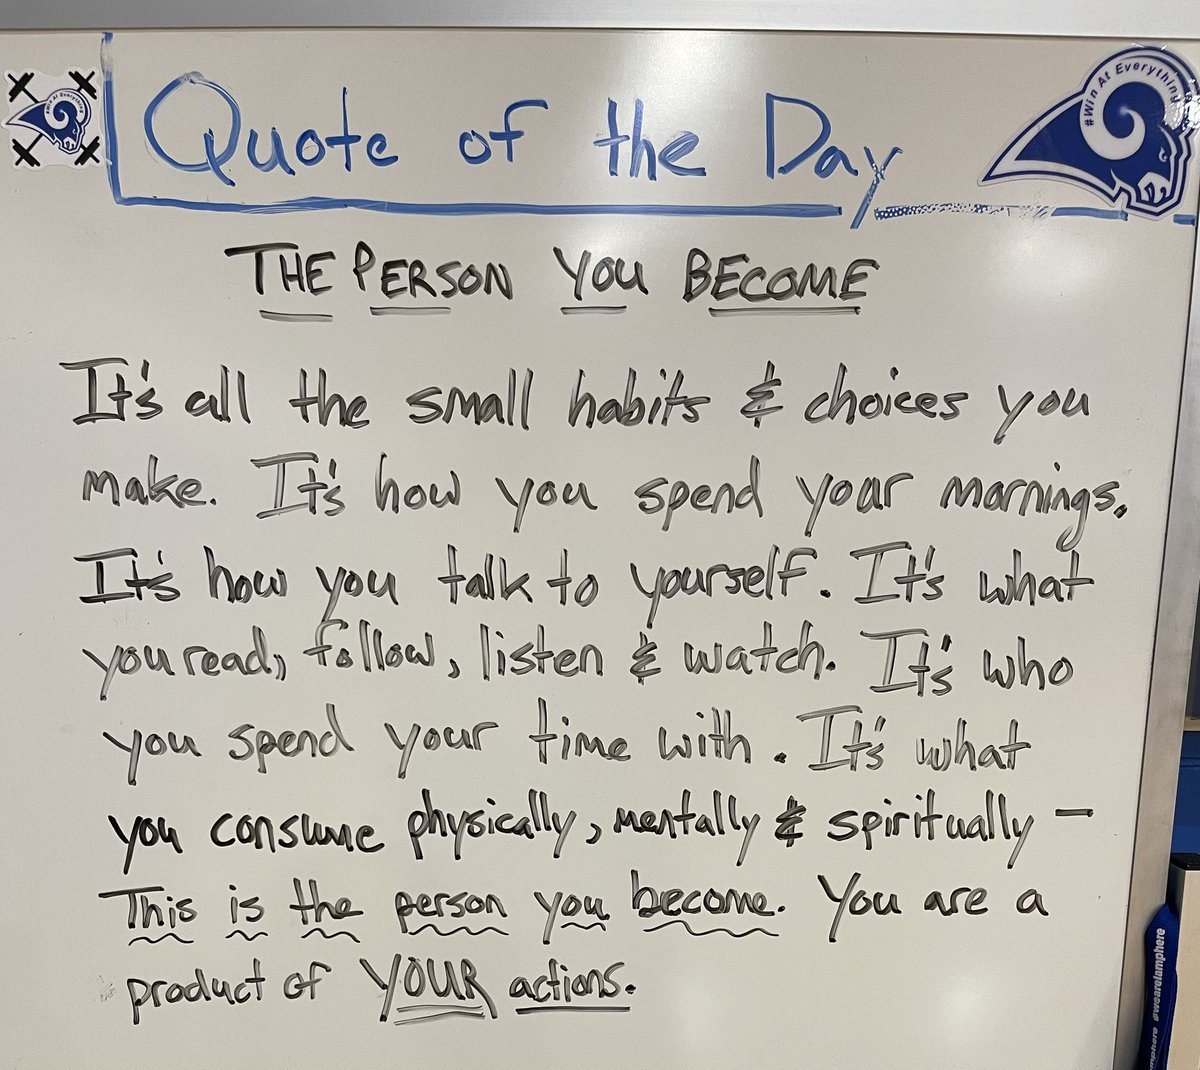 #Win At Everything
Quote of the Day
#Win At Everything
THE PERSON YOU BECOME
It's all the small habits & choices you
make. It's how you spend your mornings.
It's how you talk to yourself. It's what
you read, follow, listen & watch. It's who
you spend your time with. It's what
you consume physically, mentally & spiritually –
This is the person you become. You are a
product of YOUR actions.
#wearelamphere